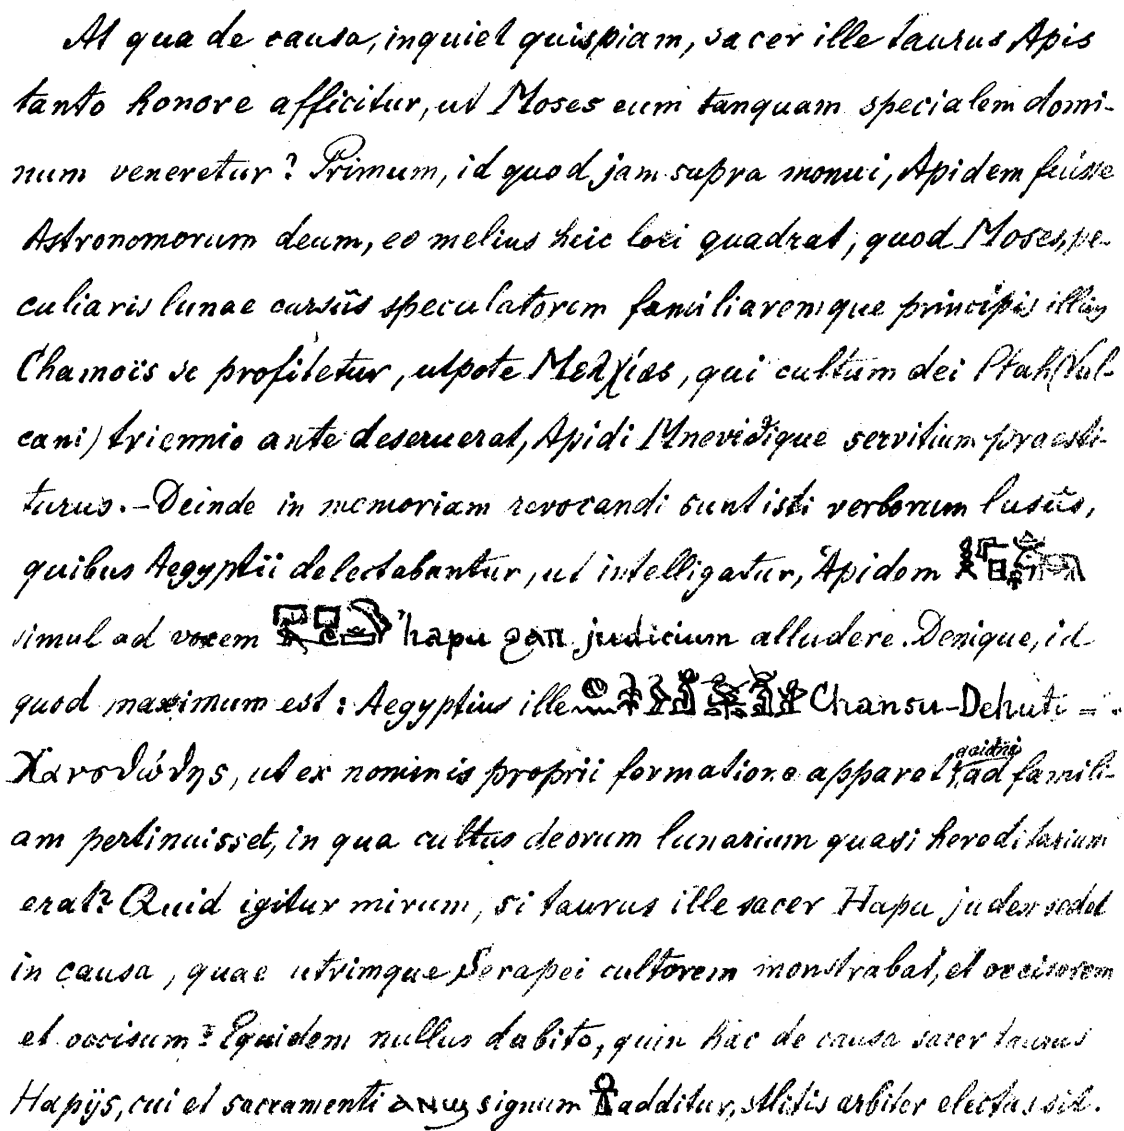 At qua de causa, inquiet quispiam, sacer ille taurus Apis
tanto honore afficitur, ut Moses eum tanquam specialem domi-
num veneretur? Primum, id quod jam supra monui, Apidem fuisse
Astronomorum deum, eo melius heic loci quadrat, quod Moses, pe-
culiaris lunae cursûs speculatorem familiaremque principis illius
Chamoïs se profitetur, utpote Μελχίας, qui cultum dei Ptah (Vul-
cani) triennio ante deseruerat, Apidi Mnevidique servitium praesti-
turus. – Deinde in memoriam revocandi sunt isti verborum lusûs,
quibus Aegyptii delectabantur, ut intelligatur, Apidem
simul ad vocem 'hapu ϩⲁⲡ judicium alludere. Denique, id
quod maximum est: Aegyptius ille Chansu-Dehuti =
Χανσθώθης, ut ex nominis proprii formatione apparet, ad famili-
am pertinuisset, in qua cultus deorum lunarium quasi hereditarium
erat? Quid igitur mirum, si taurus ille sacer Hapu judex sedet
in causa, quae utrimque Serapei cultorem monstrabat, et occisorem
et occisum? Equidem nullus dubito, quin hac de causa sacer taurus
Hapijs, cui et sacramenti ⲁⲛⲁϣ signum ☥ additur, litis arbiter electus sit.